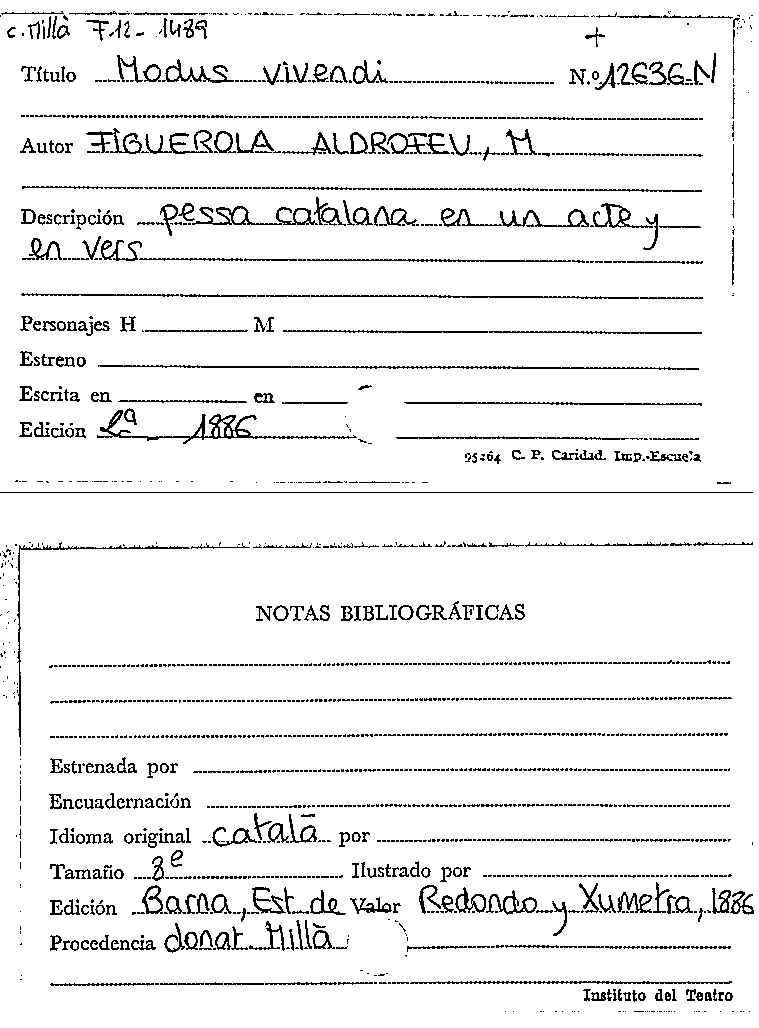 c. Millà F.12 - 1489 +
Título Modus vivendi N.º 12636-N
Autor FIGUEROLA ALDROFEU, M
Descripción pessa catalana en un acte y
en vers
Personajes H M
Estreno
Escrita en en
Edición 2ª 1886
95264 C. P. Caridad. Imp.-Escuela
NOTAS BIBLIOGRÁFICAS
Estrenada por
Encuadernación
Idioma original català por
Tamaño 8e Ilustrado por
Edición Barna, Est. de Valor Redondo y Xumetra, 1886
Procedencia donat. Millà
Instituto del Teatro